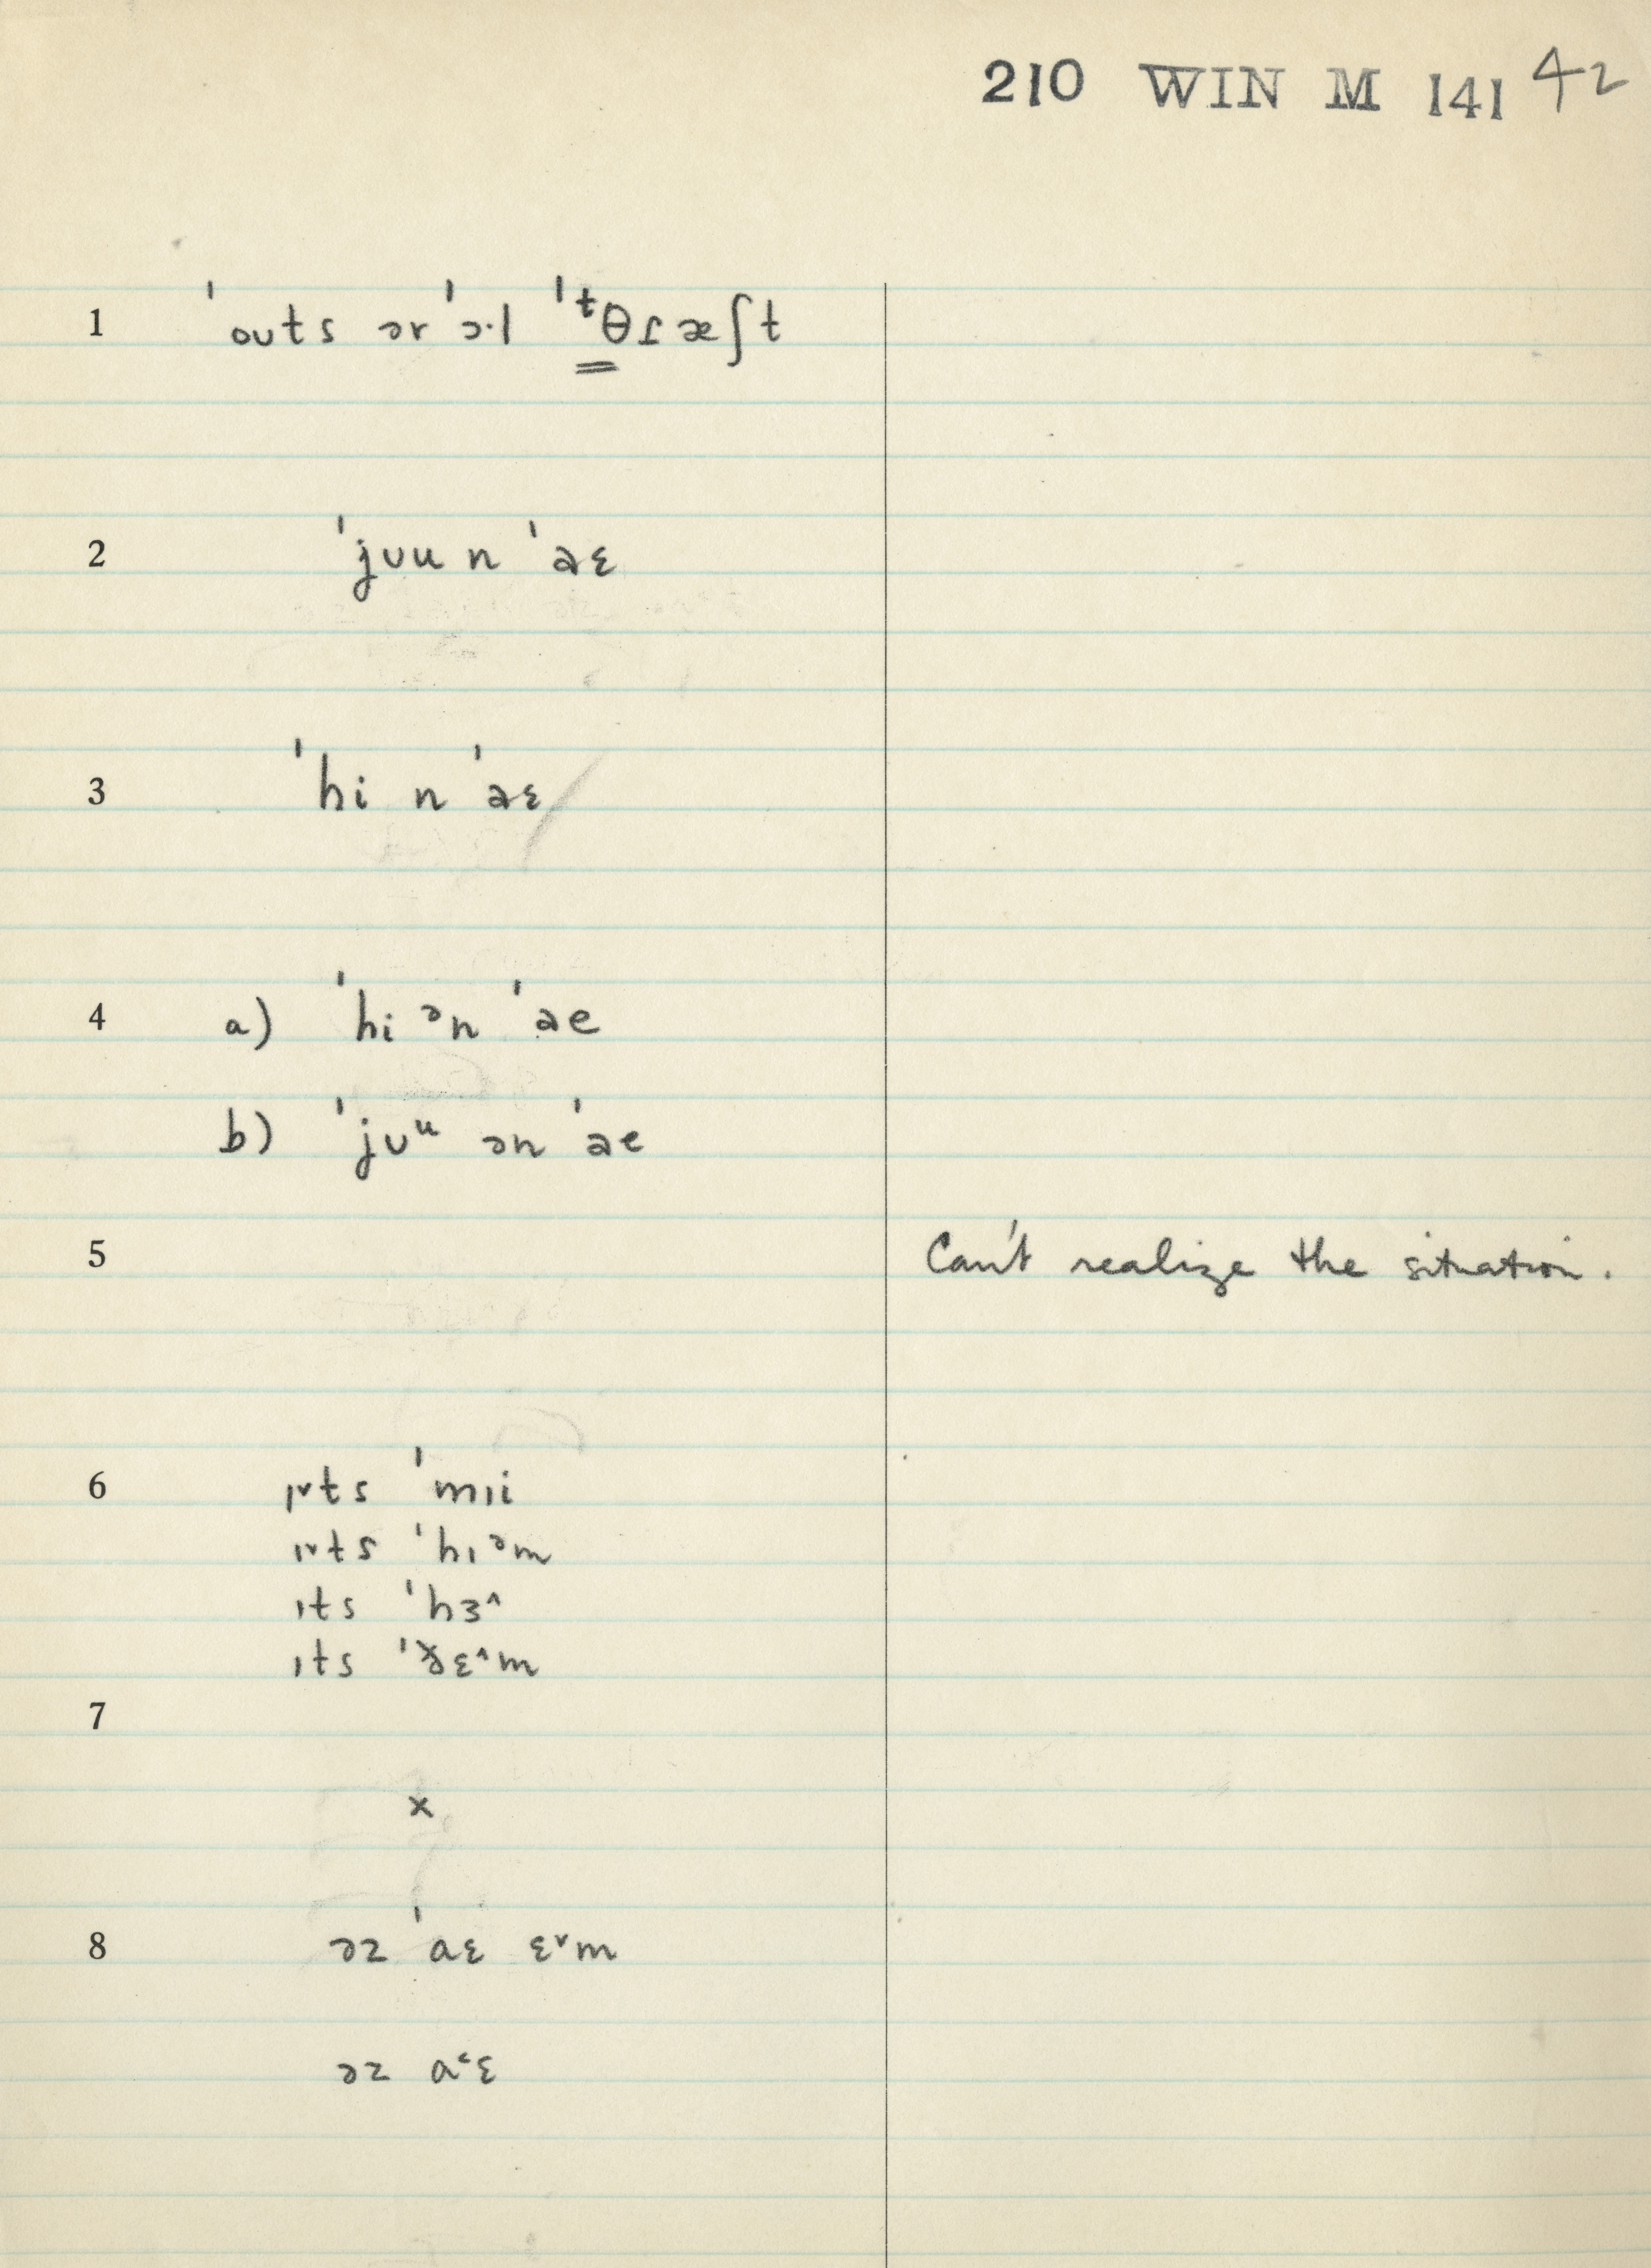 210 WIN M 141 42
1 ˈouts ər ˈɔ·l ˈᵗθɾæʃt
2 ˈjʊu n ˈaɛ
3 ˈhi n ˈaɛ
4 a) ˈhi ᵊn ˈae
b) ˈjʊᵘ ən ˈae
5 Can't realize the situation.
6 ɪ˅ts ˈmɪi
ɪ˅ts ˈhɪᵊm
ɪts ˈhɜ˄
ɪts ˈðɛ˄m
7
×
8 əz ˈaɛ ɛ˅m
əz a˂ɛ